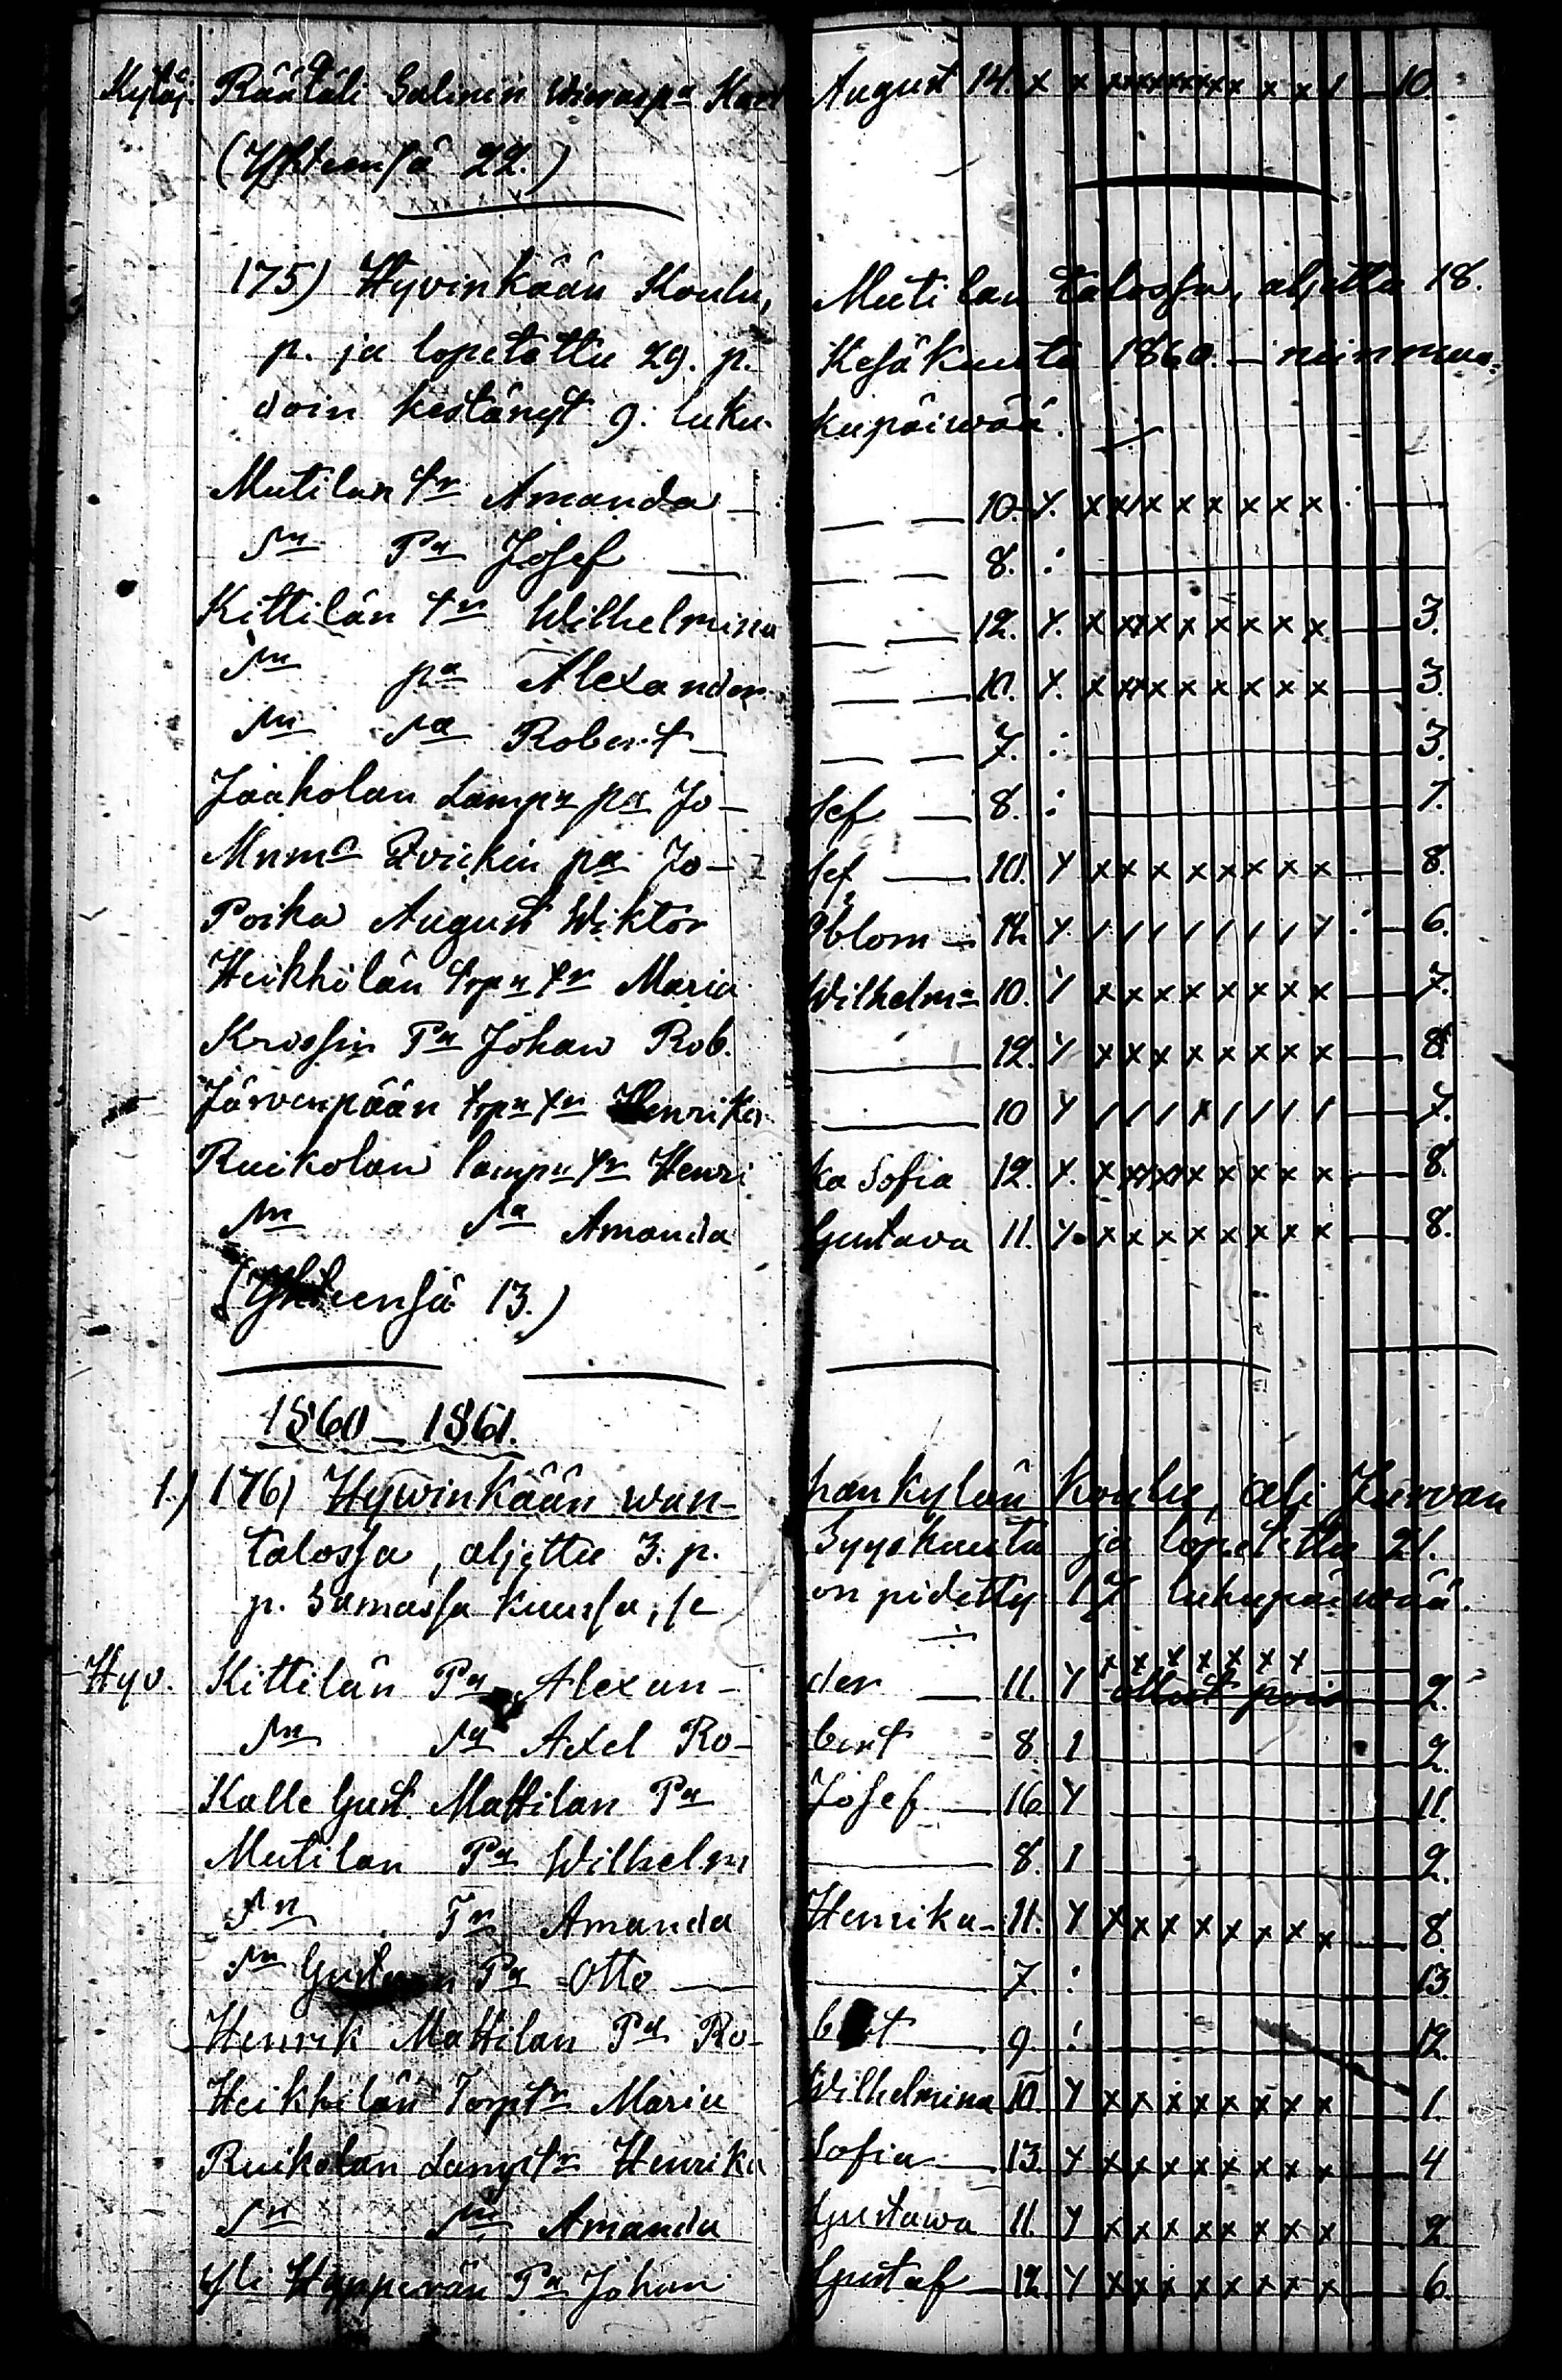 Kytäj. Räätäli Salmin Karl August 14. x x x x x x x x x x x x x 1 — 10.
(Yhtensä 22.)
175) Hyvinkään Koulu, Mutilan talossa, aljettu 18.
p. ja lopetettu 29. p. Kesäkuuta 1860. — niinmuo-
doin kestänyt 9. luku- kupäiwää.
Mutilan tr Amanda — — — 10. y. x x x x x x x x x : —
sn Pa Josef — — — 8. :
Kittilän tr Wilhelmina — — 12. y. x x x x x x x x x — 3.
sn pa Alexander — — y. x x x x x x x x x — 3.
sn sa Robert — — — 7. : — 3.
Jaakolan Lampn pa Jo- sef — 8. : — 7.
Mnma pa Jo- sef — 10. y x x x x x x x x — 8.
Poika August Wiktor blom — y / / / / / / / y : — 6.
Heikkilän torpn tr Maria Wilhelma 10. y x x x x x x x x — 7.
Krossin Pa Johan Rob. — 12. y x x x x x x x x — 8.
Järvenpään torpn tr Henrika — 10 y / / / x / / / / — 7.
Ruikolan lampn tr Henri ka Sofia 12. y. x x x x x x x x x — 8.
sn sa Amanda Gustava 11. y. x x x x x x x x — 8.
(Yhteensä 13.)
1860 — 1861.
1.) 176) Hywinkään wan- han kylän Koulu, ali
talossa, aljettu 3. p. Syyskuuta ja lopetettu 21.
p. samassa kuussa, se on pidetty 17 lukupäiwää.
Hyv. Kittilän Pa Alexan- der — 11. y x x x x x x x ollut pois — 2.
sn sa Axel Ro- bert — 8. 1 — 2.
Kalle Gust. Mattilan Pa Josef — 16 y — 11.
Mutilan Pa Wilhelm — 8. 1 — 2.
sn Tr Amanda Henrika — 11. y x x x x x x x x — 8.
sn Pa Otto — — 7. : 13.
Henrik Mattilan Pa Ro- bert — 9. : — 12.
Heikkilän Torptr Maria Wilhelmina 10. y x x x x x x x x — 1.
Ruikolan Lamptr Henrika Sofia — 13. y x x x x x x x x — 4
sn sn Amanda Gustawa 11. y x x x x x x x x — 2
Yli Hyppärän Pa Johan Gustaf — 12. y x x x x x x x x — 6.